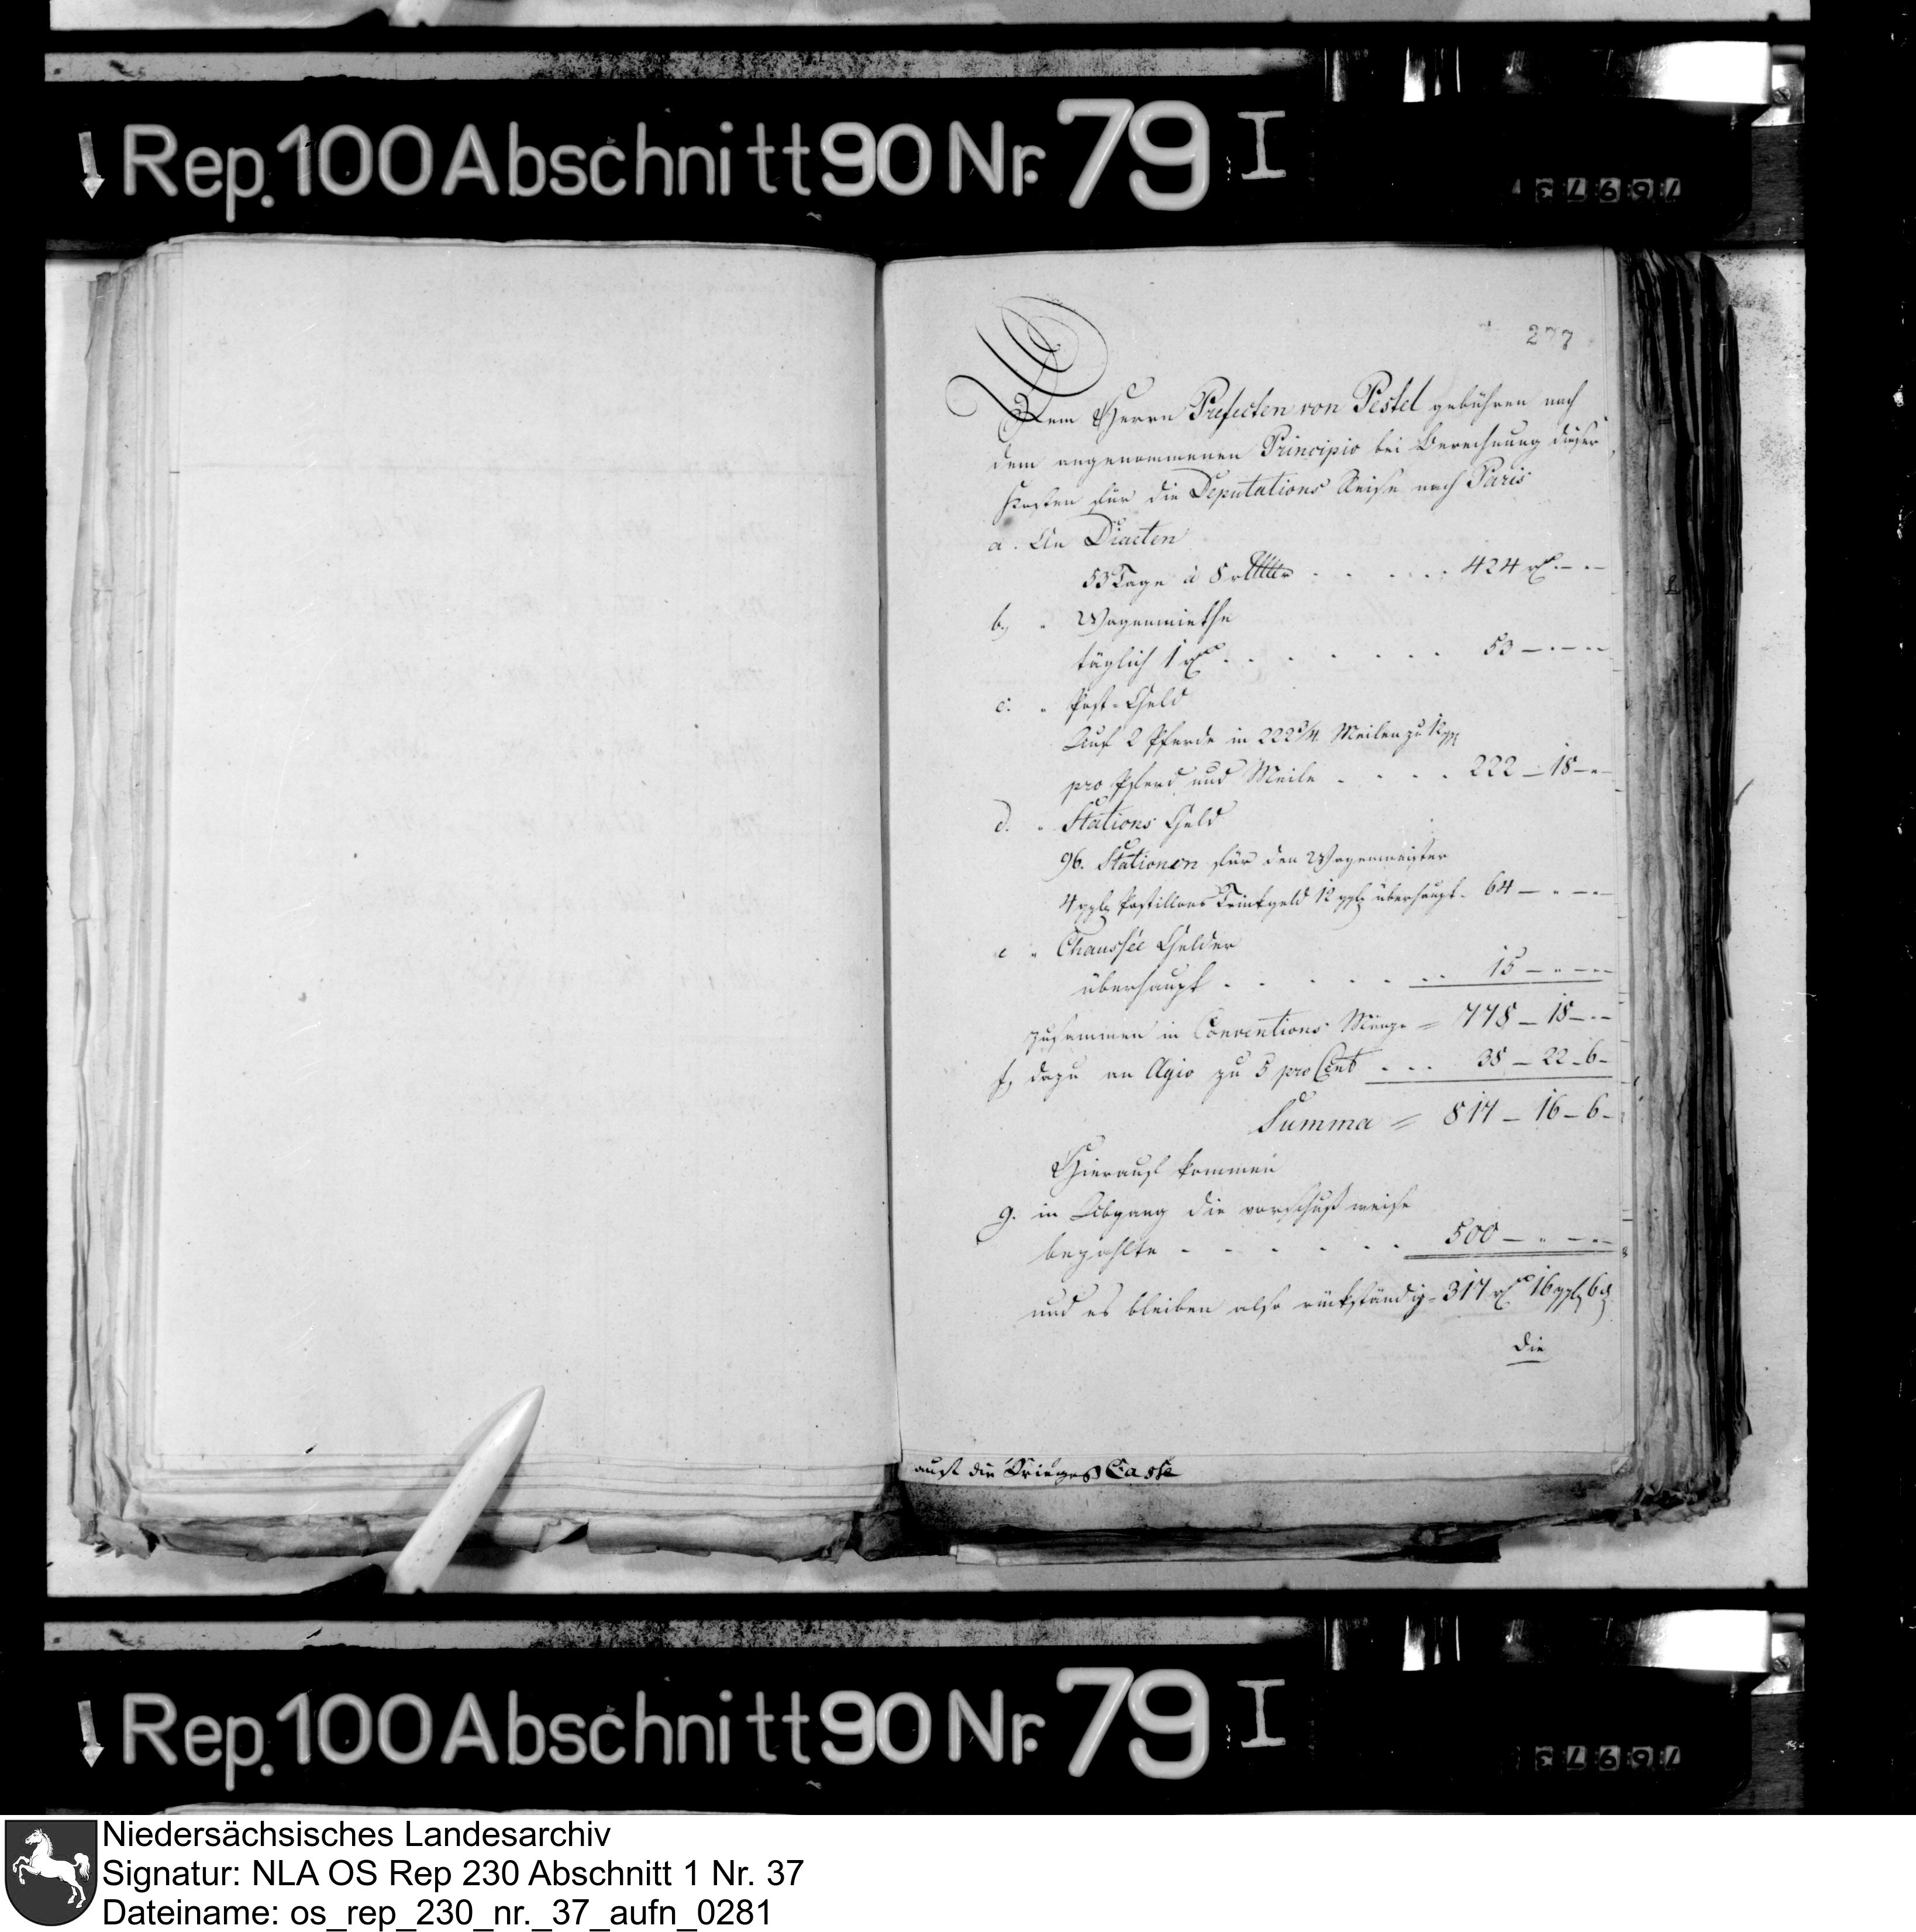 Rep. 100 Abschnitt 90 Nr. 79 I
277
Dem Herrn Prefecten von Pestel gebühren nach
dem angenommenen Principio bei Berechnung dieser
Kosten für die Deputations Reise nach Paris
a. An Diaeten
53 Tage à 8 424 rℓ. – „ –
b, „ Wagenmiethe
täglich 1 rℓ. . . . . . . . 53 – „ – „ –
c. „ Post-Geld
Auf 2 Pferde in 222¾ Meilen zu 12 ggl
pro Pferd und Meile . . . . 222 – 18 – „ –
d. „ Stations Geld
96. Stationen für den Wagenmeister
4 gglℓ Postillons Trinkgeld 12 gglℓ überhaupt. 64 – „ – „ –
e „ Chaussée Gelder
überhaupt . . . . . . . 15 – „ – „ –
zusammen in Conventions Münze = 778 – 18 – „ –
f, dazu an Agio zu 5 pro Cent . . . 38 – 22 – 6 –
Summa = 817 – 16 – 6 –
Hierauf kommen
g. in Abgang die vorschußweise
bezahlte . . . . . . 500 – „ – „ –
und es bleiben also rückständig = 317 rℓ 16 gglℓ 6 ₰
die
auf die Krieges Casse
Rep. 100 Abschnitt 90 Nr. 79 I
Niedersächsisches Landesarchiv
Signatur: NLA OS Rep 230 Abschnitt 1 Nr. 37
Dateiname: os_rep_230_nr._37_aufn_0281